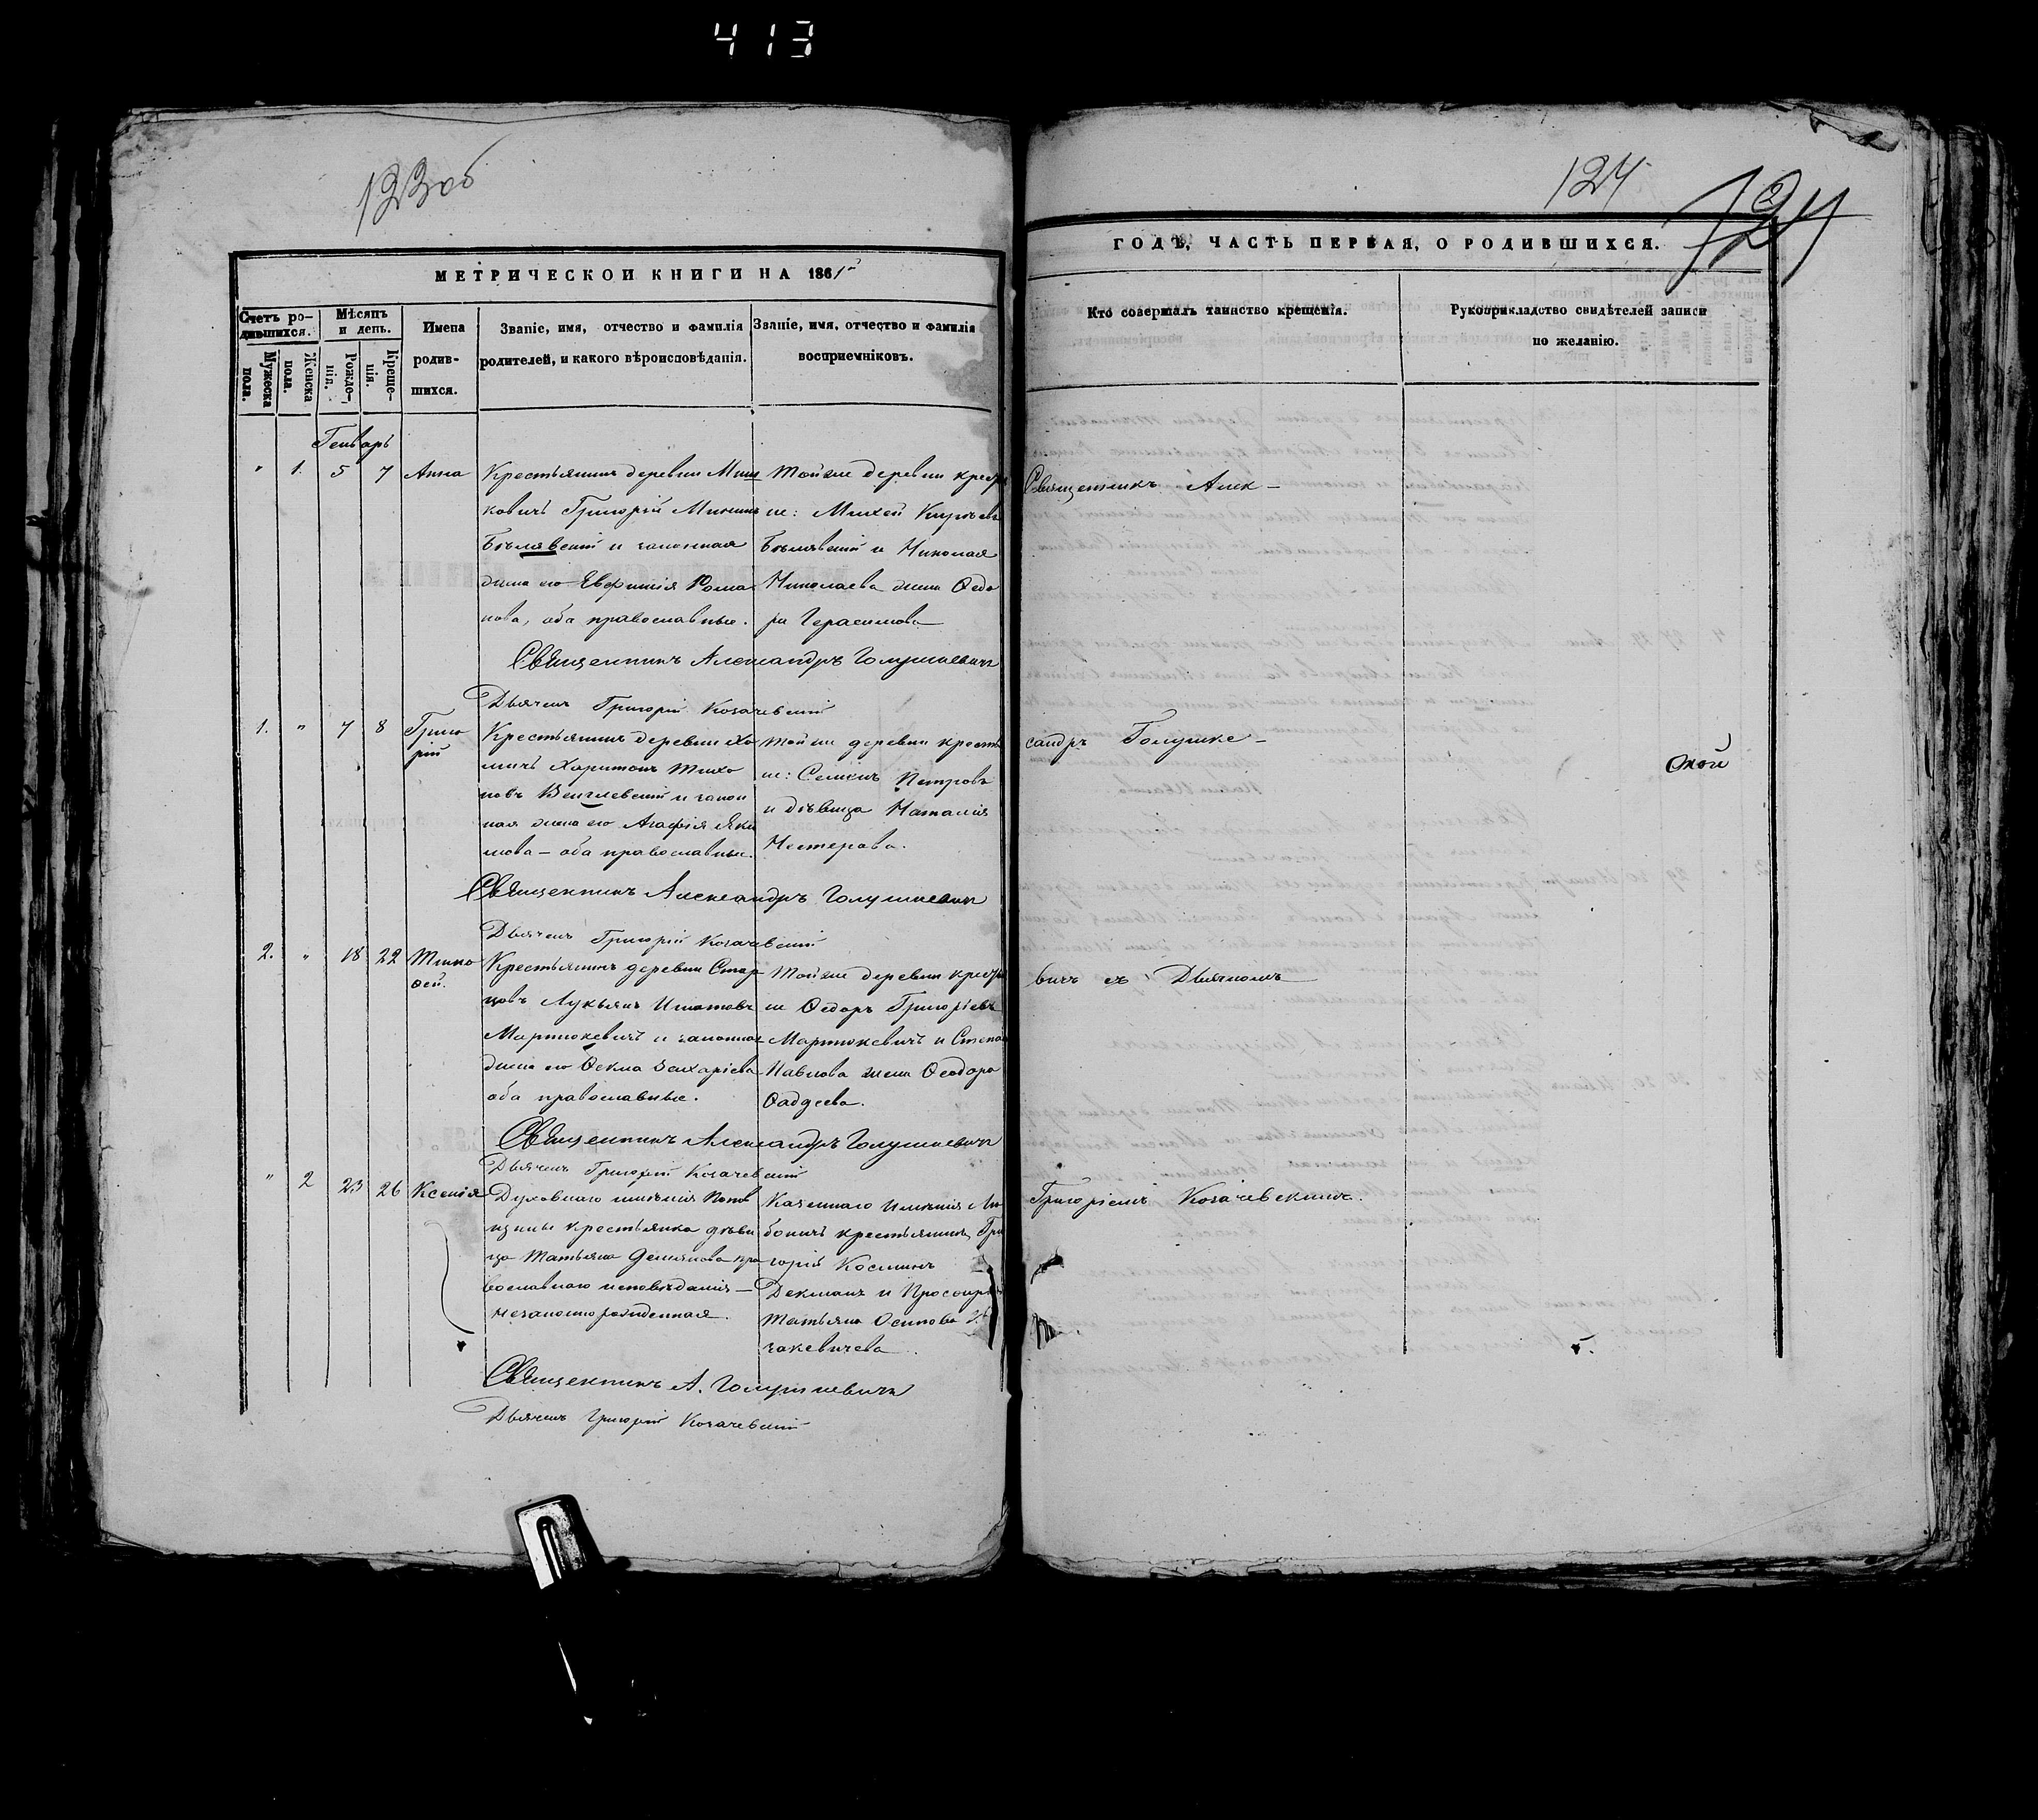 413
123об
124
124
МЕТРИЧЕСКОЙ КНИГИ НА 1861
ГОДЪ, ЧАСТЬ ПЕРВАЯ, О РОДИВШИХСЯ.
Счетъ ро-
дившихся.
Мужеска
пола.
Женска
пола.
Мѣсяцъ
и день.
Рожде-
нія.
Креще-
нія.
Имена
родив-
шихся.
Званіе, имя, отчество и фамилія
родителей, и какого вѣроисповѣданія.
Званіе, имя, отчество и фамилія
восприемніковъ.
Кто совершалъ таинство крещенія.
Рукоприкладство свидѣтелей записи
по желанію.
Генварь
" 1. 5 7 Анна
Крестьянинъ деревни
ковичъ Григорій
Бѣлявскій и законная
жена его Евфимія Рома
нова, оба православные.
Тойже деревни крестья
не: Михей
Бѣлявскій и Николая
Николаева жена Ѳедо
ра Герасимова
Священникъ Александръ Голушкевичъ
Дьячекъ Григорій Козачевскій
1. " 7 8 Григо
рій
Крестьянинъ деревни Хо
мичъ Харитонъ Тихо
новъ и закон
ная жена его Агафія Яки
мова — оба православные.
Тойже деревни крестья
не: Семенъ Петровъ
и дѣвица Наталія
Нестерова.
Священникъ Александръ Голушкевичъ
Дьячекъ Григорій Козачевскій
2. " 18 22 Тимо
ѳей.
Крестьянинъ деревни Стар
цовъ Лукьянъ Игнатовъ
Мартюкевичъ и законная
жена его Ѳекла Захаріева
оба православные.
Тойже деревни крестья
не Ѳедоръ Григорьевъ
Мартюкевичъ и Степа
Павлова жена Ѳеодора
Ѳадеева.
Священникъ Александръ Голушкевичъ
Дьячекъ Григорій Козачевскій
" 2 23 26 Ксенія
Духовнаго имѣнія
щины крестьянка дѣви
ца Татьяна Демянова пра
вославнаго исповѣданія —
незаконно рожденная.
Казеннаго имѣнія Лю
боничъ крестьянинъ Гри
горій Косминъ
Декманъ и Просфирня
Татьяна Осипова
чакевичева
Священникъ А. Голушкевичъ
Дьячекъ Григорій Козачевскій
Священникъ Алек-
сандръ Голушке-
вичъ съ Дьячкомъ
Григоріемъ Козачевскимъ.